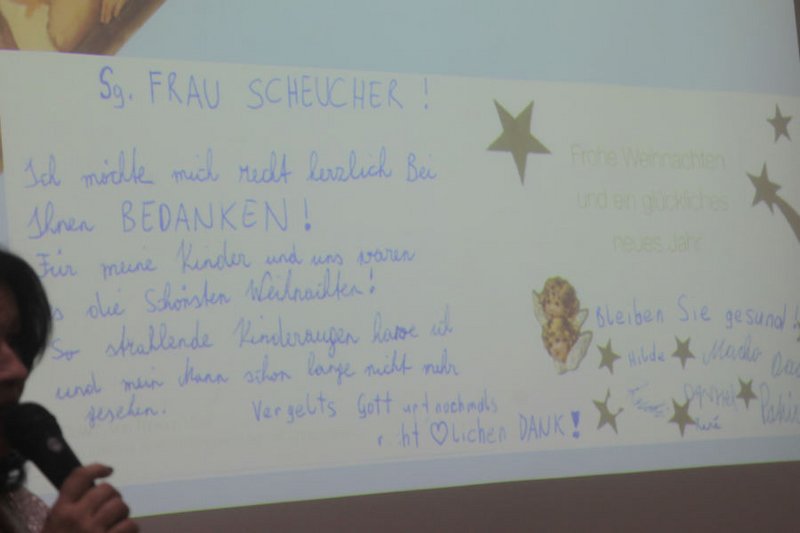 Sg. FRAU SCHEUCHER !
Ich möchte mich recht herzlich Bei
Ihnen BEDANKEN !
Für meine Kinder und uns waren
die Schönsten Weihnachten!
So strahlende Kinderaugen habe ich
und mein Mann schon lange nicht mehr
gesehen.
Vergelts Gott und nochmals
♡lichen DANK !
Frohe Weihnachten
und ein glückliches
neues Jahr
Bleiben Sie gesund
Hilde